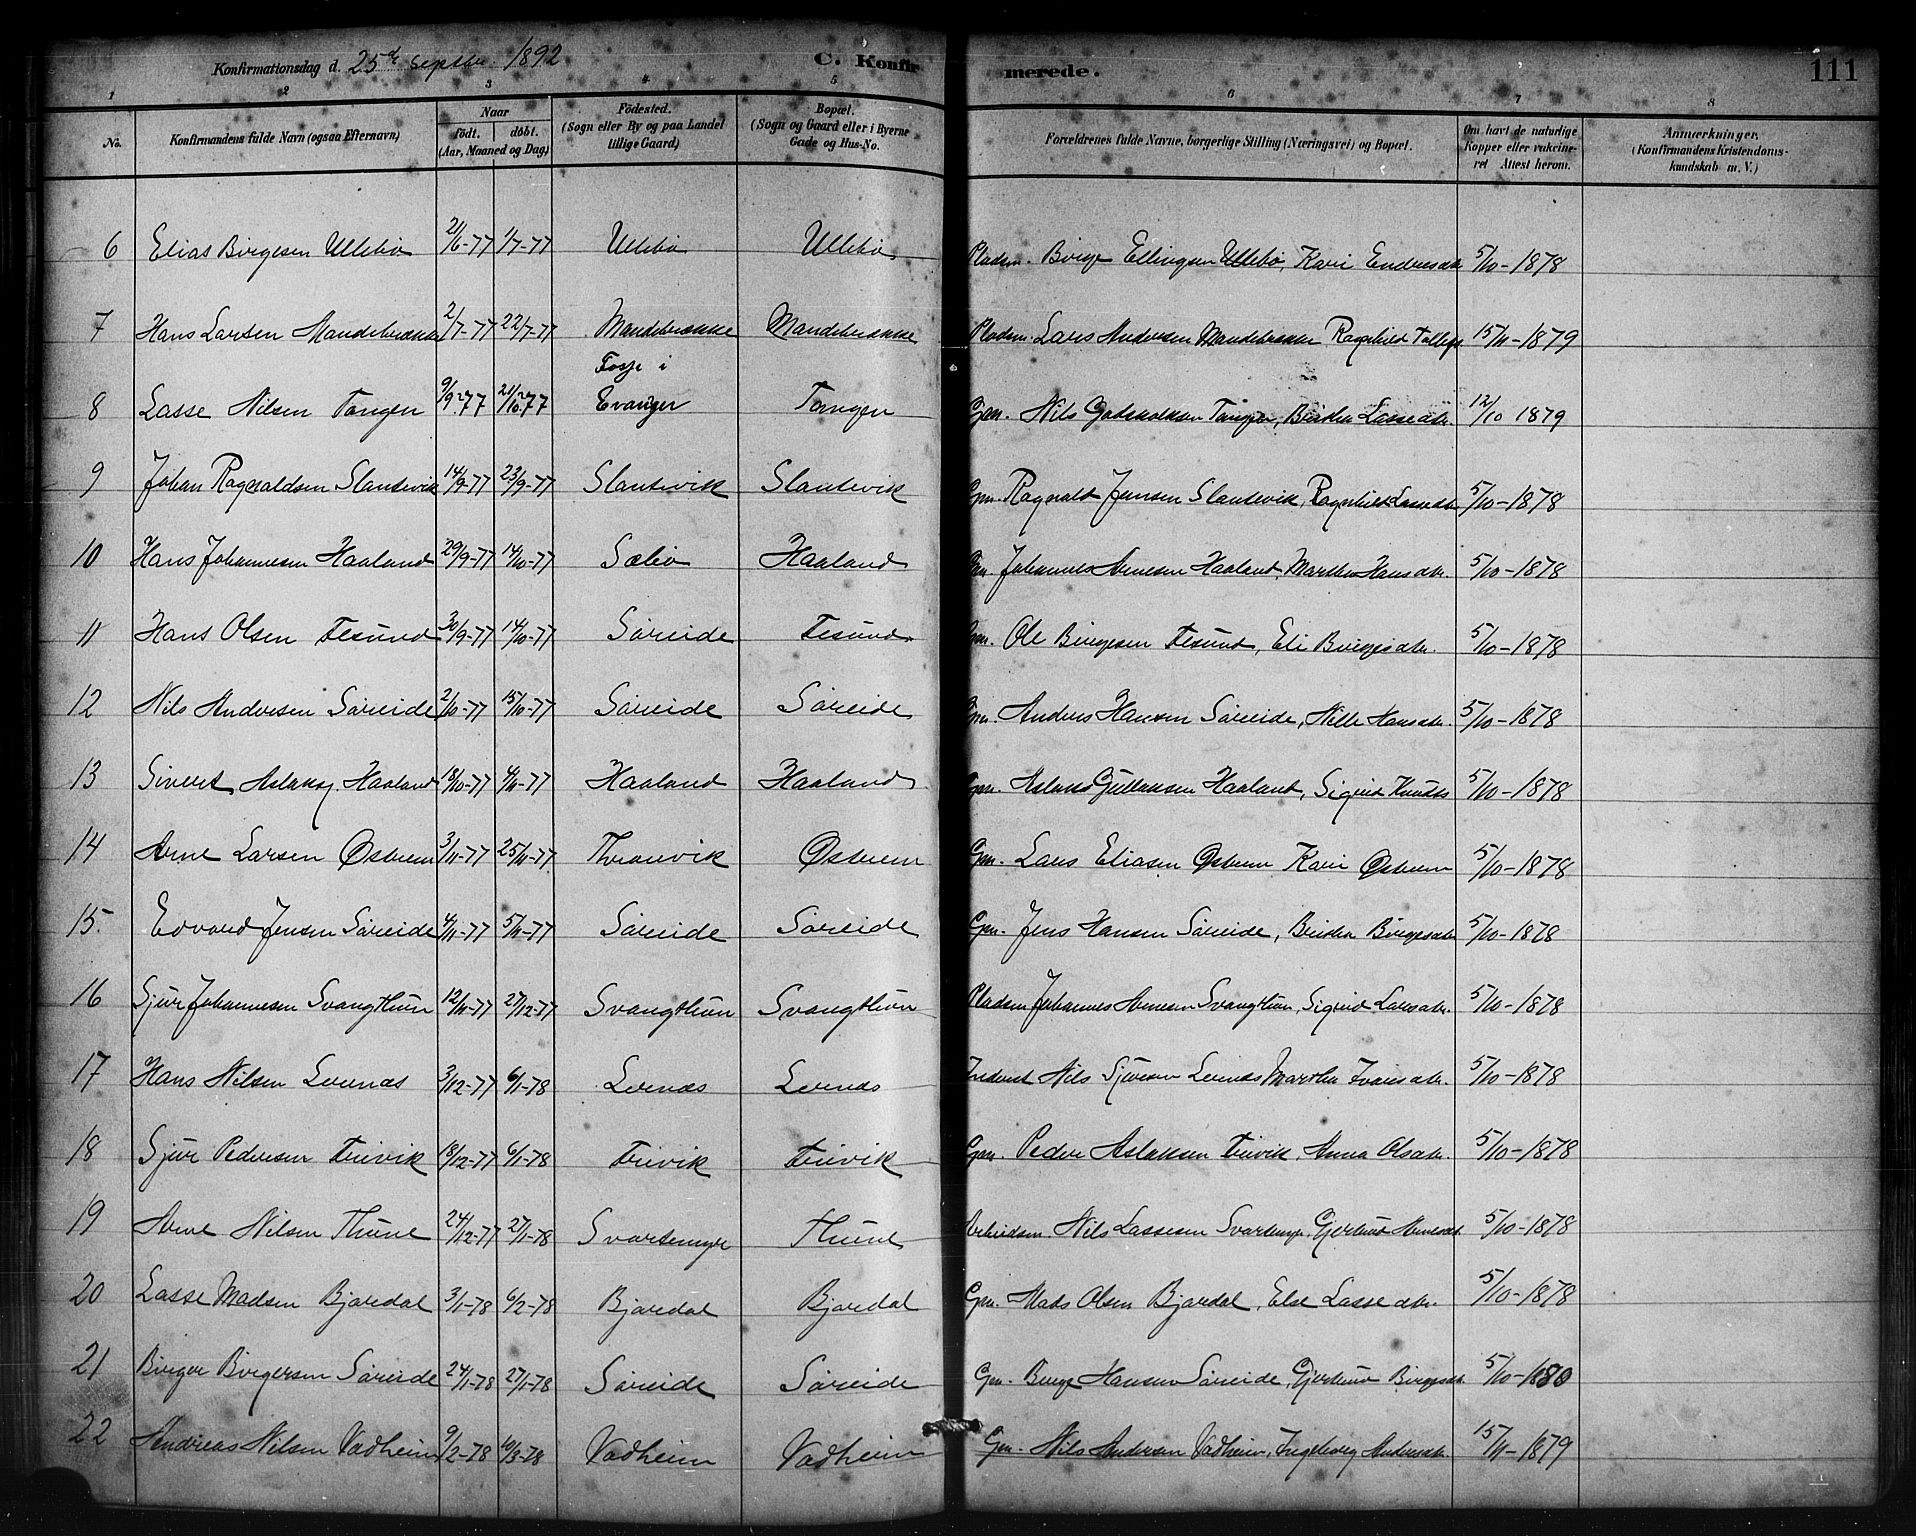 Konfirmationsdag d. 25de Septbr. 1892
C. Konfirmerede.
111
1 2 3 4 5 6 7 8
No.
Konfirmandens fulde Navn (ogsaa Efternavn)
Naar
födt. döbt.
(Aar, Maaned og Dag)
Födested.
(Sogn eller By og paa Landet
tillige Gaard)
Bopæl.
(Sogn og Gaard eller i Byerne
Gade og Hus-No.
Forældrenes fulde Navne, borgerlige Stilling (Næringsvei) og Bopæl.
Om havt de naturlige
Kopper eller vakcine-
ret Attest herom.
Anmærkninger.
(Konfirmandens Kristendoms-
kundskab m. V.)
6 Elias Birgesen Ullebø 21/6-77 1/7-77 Ullebø Ullebø Pladsm. Birge Ellingsen Ullebø, Kari Endresdtr. 5/10-1878
7 Hans Larsen Mandebrække 2/7-77 22/7-77 Mandebrække Mandebrække Pladsm. Lars Andersen Mandebrække Ragnhild Tollefs 15/11-1879
8 Lasse Nilsen Tangen 9/9-77 21/10-77 Fosse i Evanger Tangen Gm. Nils Godskalksen Tangen, Britha Lassedtr. 12/10 1879
9 Johan Ragnvaldsen Slantevik 14/9-77 23/9-77 Slantevik Slantevik Gm. Ragnvald Jensen Slantevik, Ragnhild Lassedtr 5/10-1878
10 Hans Johannesen Haaland 29/9-77 14/10-77 Sæbø Haaland Gm. Johannes Arnesen Haaland, Martha Hansdtr. 5/10-1878
11 Hans Olsen Tesund 30/9-77 14/10-77 Søreide Tesund Gm. Ole Birgesen Tesund, Eli Birgesdtr. 5/10-1878
12 Nils Andersen Søreide 2/10-77 15/10-77 Søreide Søreide Gm. Anders Hansen Søreide, Nille Hansdtr. 5/10-1878
13 Sivert Aslaks. Haaland 18/10-77 4/11-77 Haaland Haaland Gm. Aslak Gullaksen Haaland, Sigrid Knudts 5/10-1878
14 Arne Larsen Østrem 3/11-77 25/11-77 Thranvik Østrem Gm. Lars Eliasen Østrem Kari Østrem 5/10-1878
15. Edvard Jensen Søreide 4/11-77 5/11-77 Søreide Søreide Gm. Jens Hansen Søreide, Britha Birgesdtr 5/10-1878
16 Sjur Johannesen Svangthun 12/11-77 27/12-77 Svangthun Svangthun Pladsm Johannes Arnesen Svangthun, Sigrid Larsdtr. 5/10-1878
17 Hans Nilsen Leernæs 3/12-77 6/1-78 Leernæs Leernæs Inderst Nils Sjursen Leernæs Martha Ivarsdtr. 5/10-1878
18 Sjur Pedersen Trivik 18/12-77 6/1-78 Trivik Trivik Gm. Peder Aslaksen Trivik, Anna Olsdtr. 5/10-1878
19 Arne Nilsen Thune 24/12-77 27/1-78 Svartemyr Thune Arbeidsm. Nils Lassesen Svartemyr, Gjertrud Arnesdt. 5/10-1878
20 Lasse Madsen Bjørdal 3/1-78 6/2-78 Bjørdal Bjørdal Gm. Mads Olsen Bjørdal, Else Lassedtr. 5/10-1878
21 Birger Birgersen Søreide 24/1-78 27/1-78 Søreide Søreide Gm. Birge Hansen Søreide, Gjertrud Birgesdt. 5/10-1880
22 Andreas Nilsen Vadheim 9/2-78 10/3-78 Vadheim Vadheim Gm. Nils Andersen Vadheim, Ingeborg Andersdtr. 15/11-1879